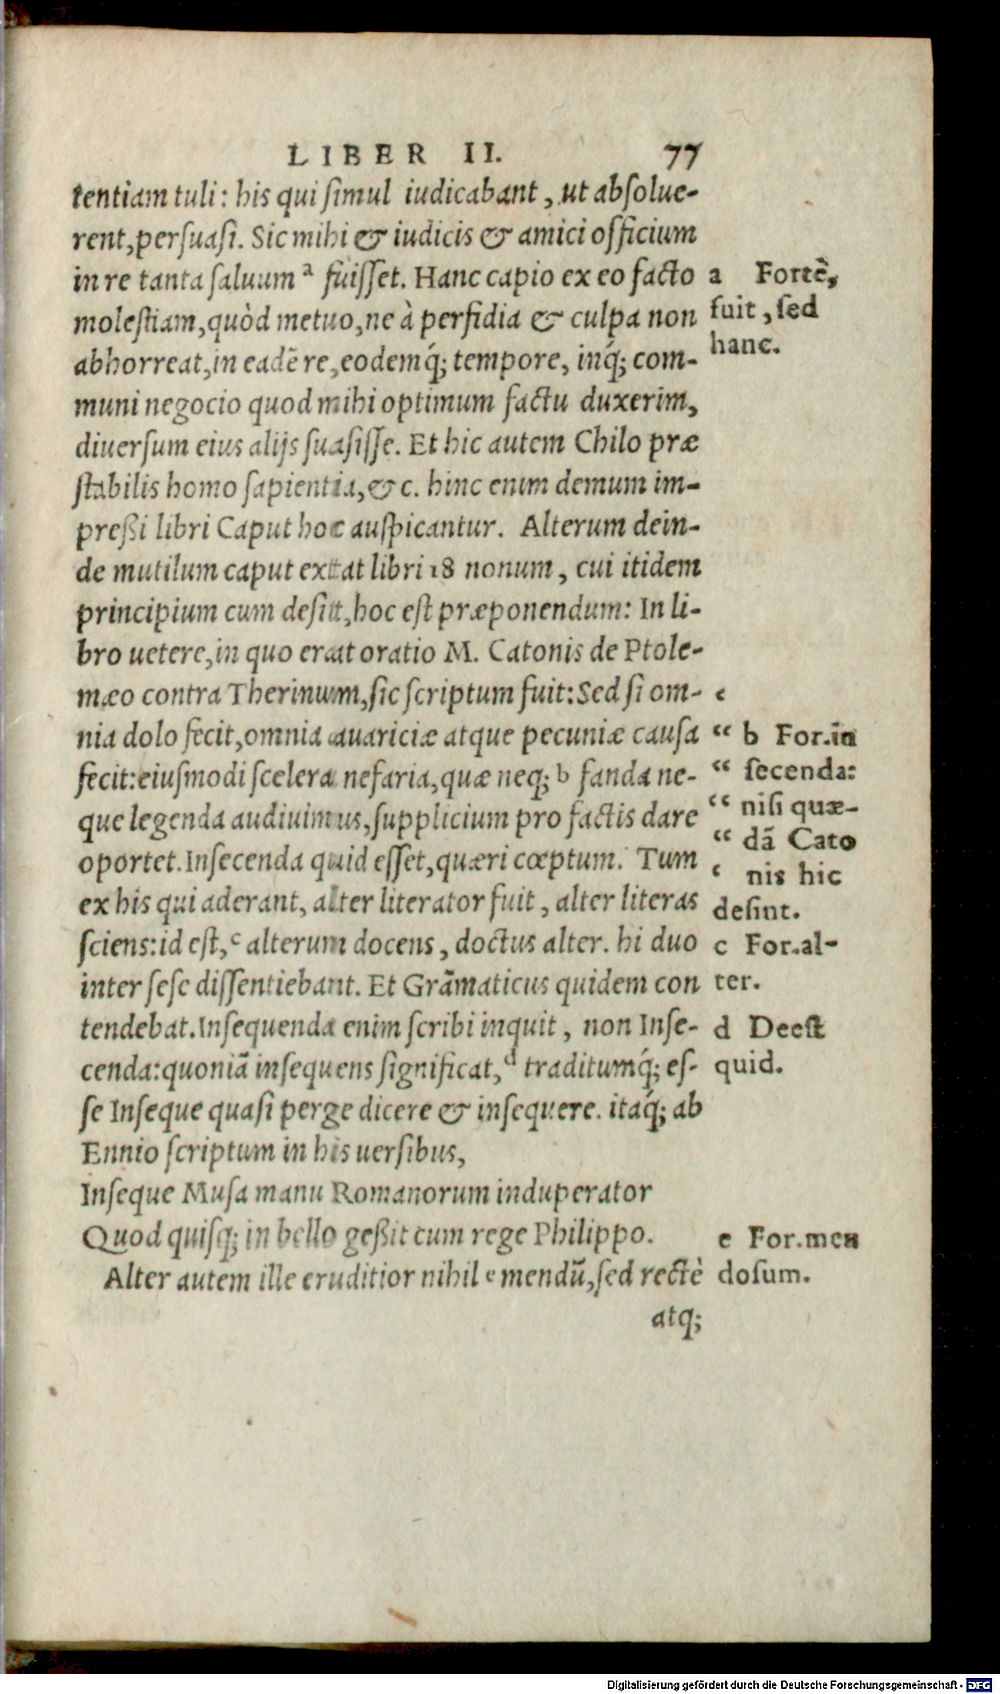 LIBER II. 77
tentiam tuli: his qui simul iudicabant, ut absolue-
rent, persuasi. Sic mihi & iudicis & amici officium
in re tanta saluum ª fuisset. Hanc capio ex eo facto
molestiam, quòd metuo, ne à perfidia & culpa non
abhorreat, in eadẽ re, eodemq́; tempore, inq́; com-
muni negocio quod mihi optimum factu duxerim,
diuersum eius alijs suasisse. Et hic autem Chilo præ
stabilis homo sapientia, &c. hinc enim demum im-
preßi libri Caput hoc auspicantur. Alterum dein-
de mutilum caput extat libri 18 nonum, cui itidem
principium cum desit, hoc est præponendum: In li-
bro uetere, in quo erat oratio M. Catonis de Ptole-
mæo contra Therinum, sic scriptum fuit: Sed si om-
nia dolo fecit, omnia auariciæ atque pecuniæ causa
fecit: eiusmodi scelera nefaria, quæ neq; b fanda ne-
que legenda audiuimus, supplicium pro factis dare
oportet. Insecenda quid esset, quæri cœptum. Tum
ex his qui aderant, alter literator fuit, alter literas
sciens: id est, c alterum docens, doctus alter. hi duo
inter sese dissentiebant. Et Grãmaticus quidem con
tendebat. Insequenda enim scribi inquit, non Inse-
cenda: quoniã insequens significat, d traditumq́; es-
se Inseque quasi perge dicere & insequere. itaq́; ab
Ennio scriptum in his uersibus,
Inseque Musa manu Romanorum induperator
Quod quisq; in bello geßit cum rege Philippo.
Alter autem ille eruditior nihil e mendũ, sed rectè
atq;
a Fortè,
fuit, sed
hanc.
‘
“ b For.in
“ secenda:
“ nisi quæ-
“ dã Cato
‘ nis hic
desint.
c For.al-
ter.
d Deest
quid.
e For.men
dosum.
Digitalisierung gefördert durch die Deutsche Forschungsgemeinschaft - DFG